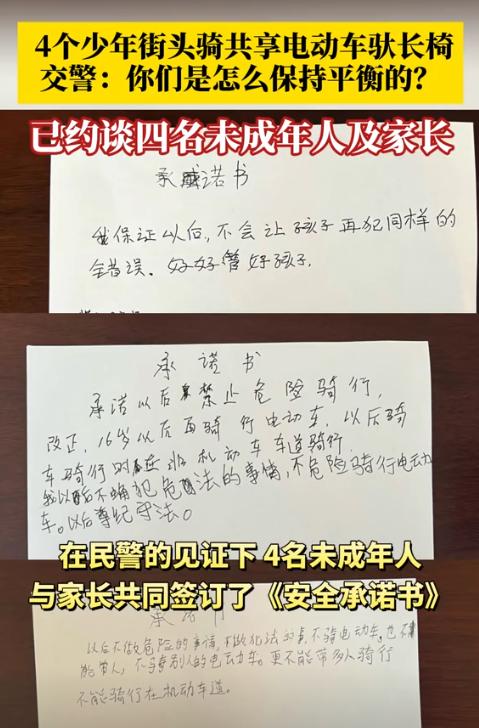 4个少年街头骑共享电动车驮长椅
交警：你们是怎么保持平衡的？
已约谈四名未成年人及家长
承诺书
我保证以后，不会让孩子再犯同样的
错误。好好管好孩子.
承诺书
承诺以后禁止危险骑行，
改正，16岁以后再骑行电动车，以后骑
车骑行 非机动车车道骑行.
我以后不 犯危 法的事情，不危险骑行电动
车。以后尊纪守法。
在民警的见证下 4名未成年人
与家长共同签订了《安全承诺书》
承诺书
以后不做危险的事情，不做犯法的事，不骑电动车，也不
能带人，不骑别人的电动车。更不能带多人骑行
不能骑行在机动车道。